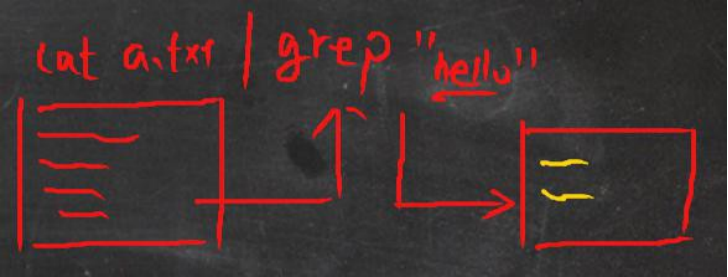 cat a.txt | grep "hello"